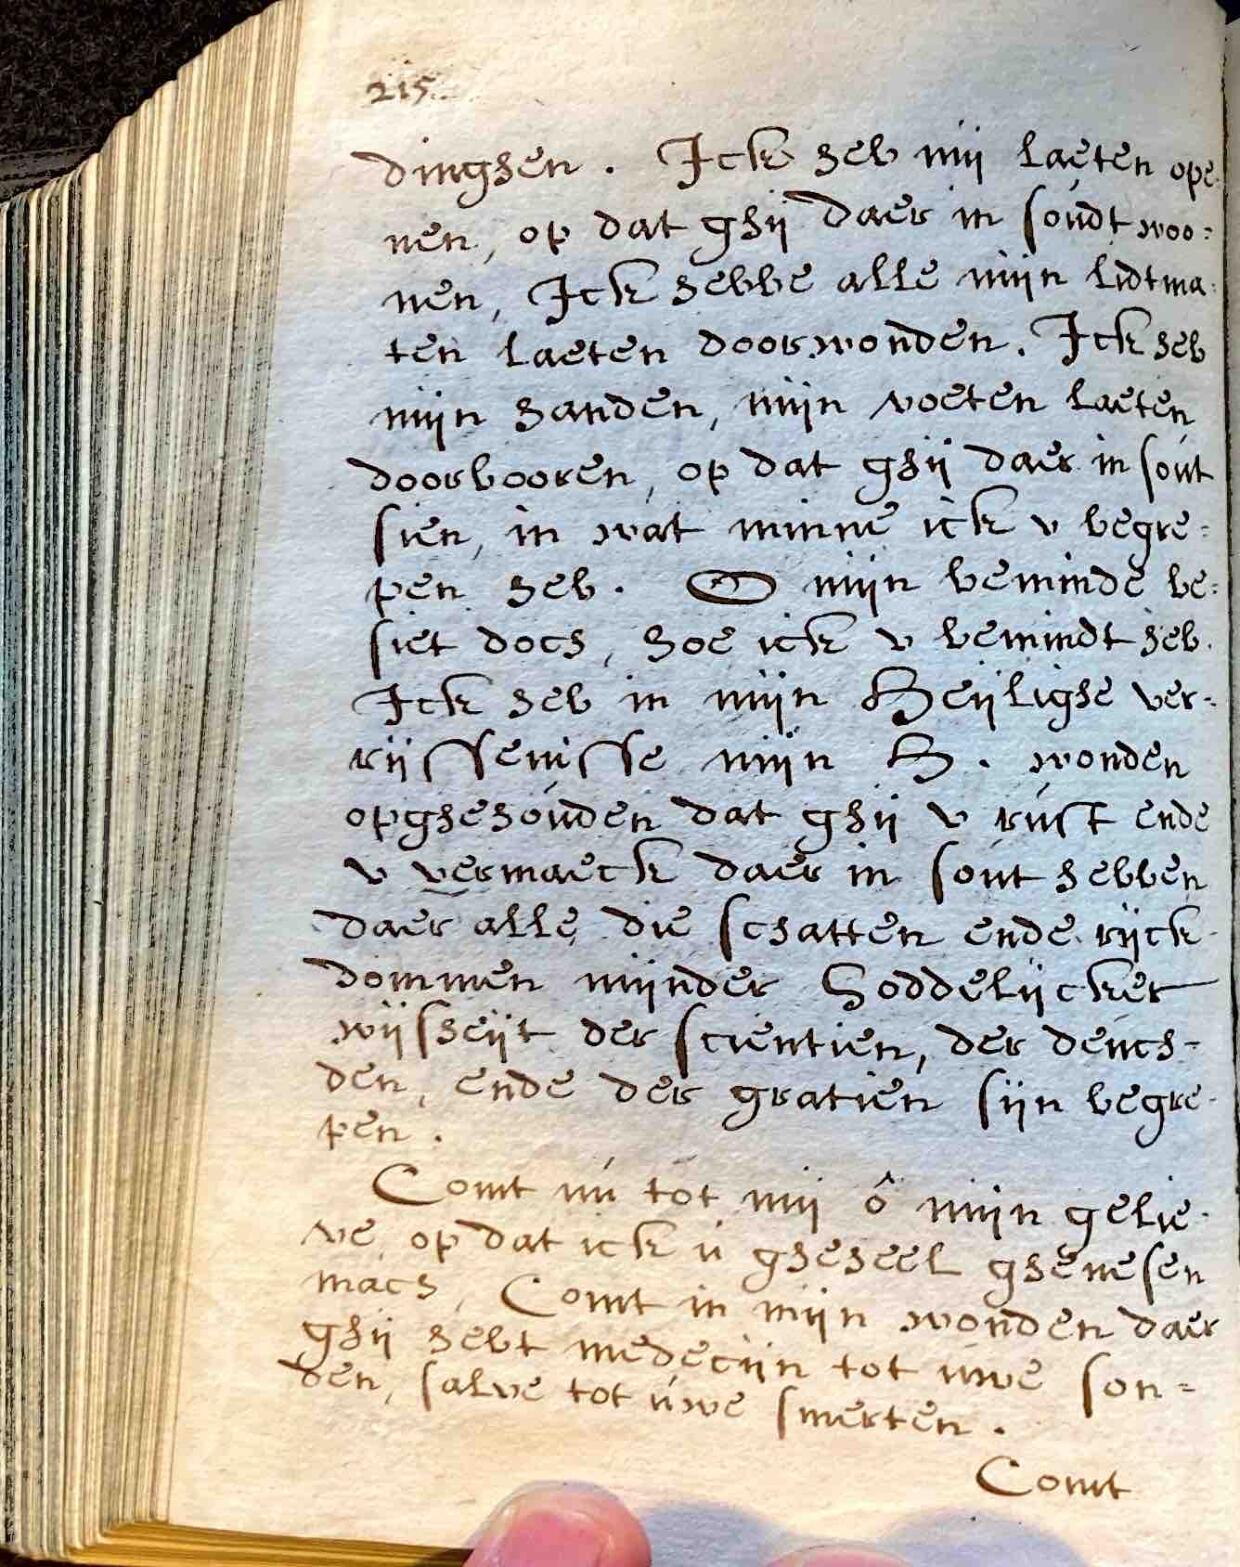 215.
dinghen. Ick heb mij laeten ope:
nen, op dat ghij daer in soudt woo:
nen, Ick hebbe alle mijn lidtma:
ten laeten doorwonden. Ick heb
mijn handen, mijn voeten laeten
doorbooren, op dat ghij daer in sout
sien, in wat minne ick v begre:
pen heb. O mijn beminde be:
siet doch, hoe ick v bemindt heb.
Ick heb in mijn Heijlighe ver:
rijssenisse mijn H. wonden
opghehouden dat ghij v rust ende
v vermaeck daer in sout hebben
daer alle die schatten ende rijck-
dommen mijnder Goddelijcker
wijsheijt der scientien, der deuch-
den, ende der gratien sijn begre-
pen.
Comt nú tot mij ô mijn gelie-
ve op dat ick ú gheheel ghenesen
mach, Comt in mijn wonden daer
ghij hebt medecijn tot uwe son=
den, salve tot úwe smerten.
Comt